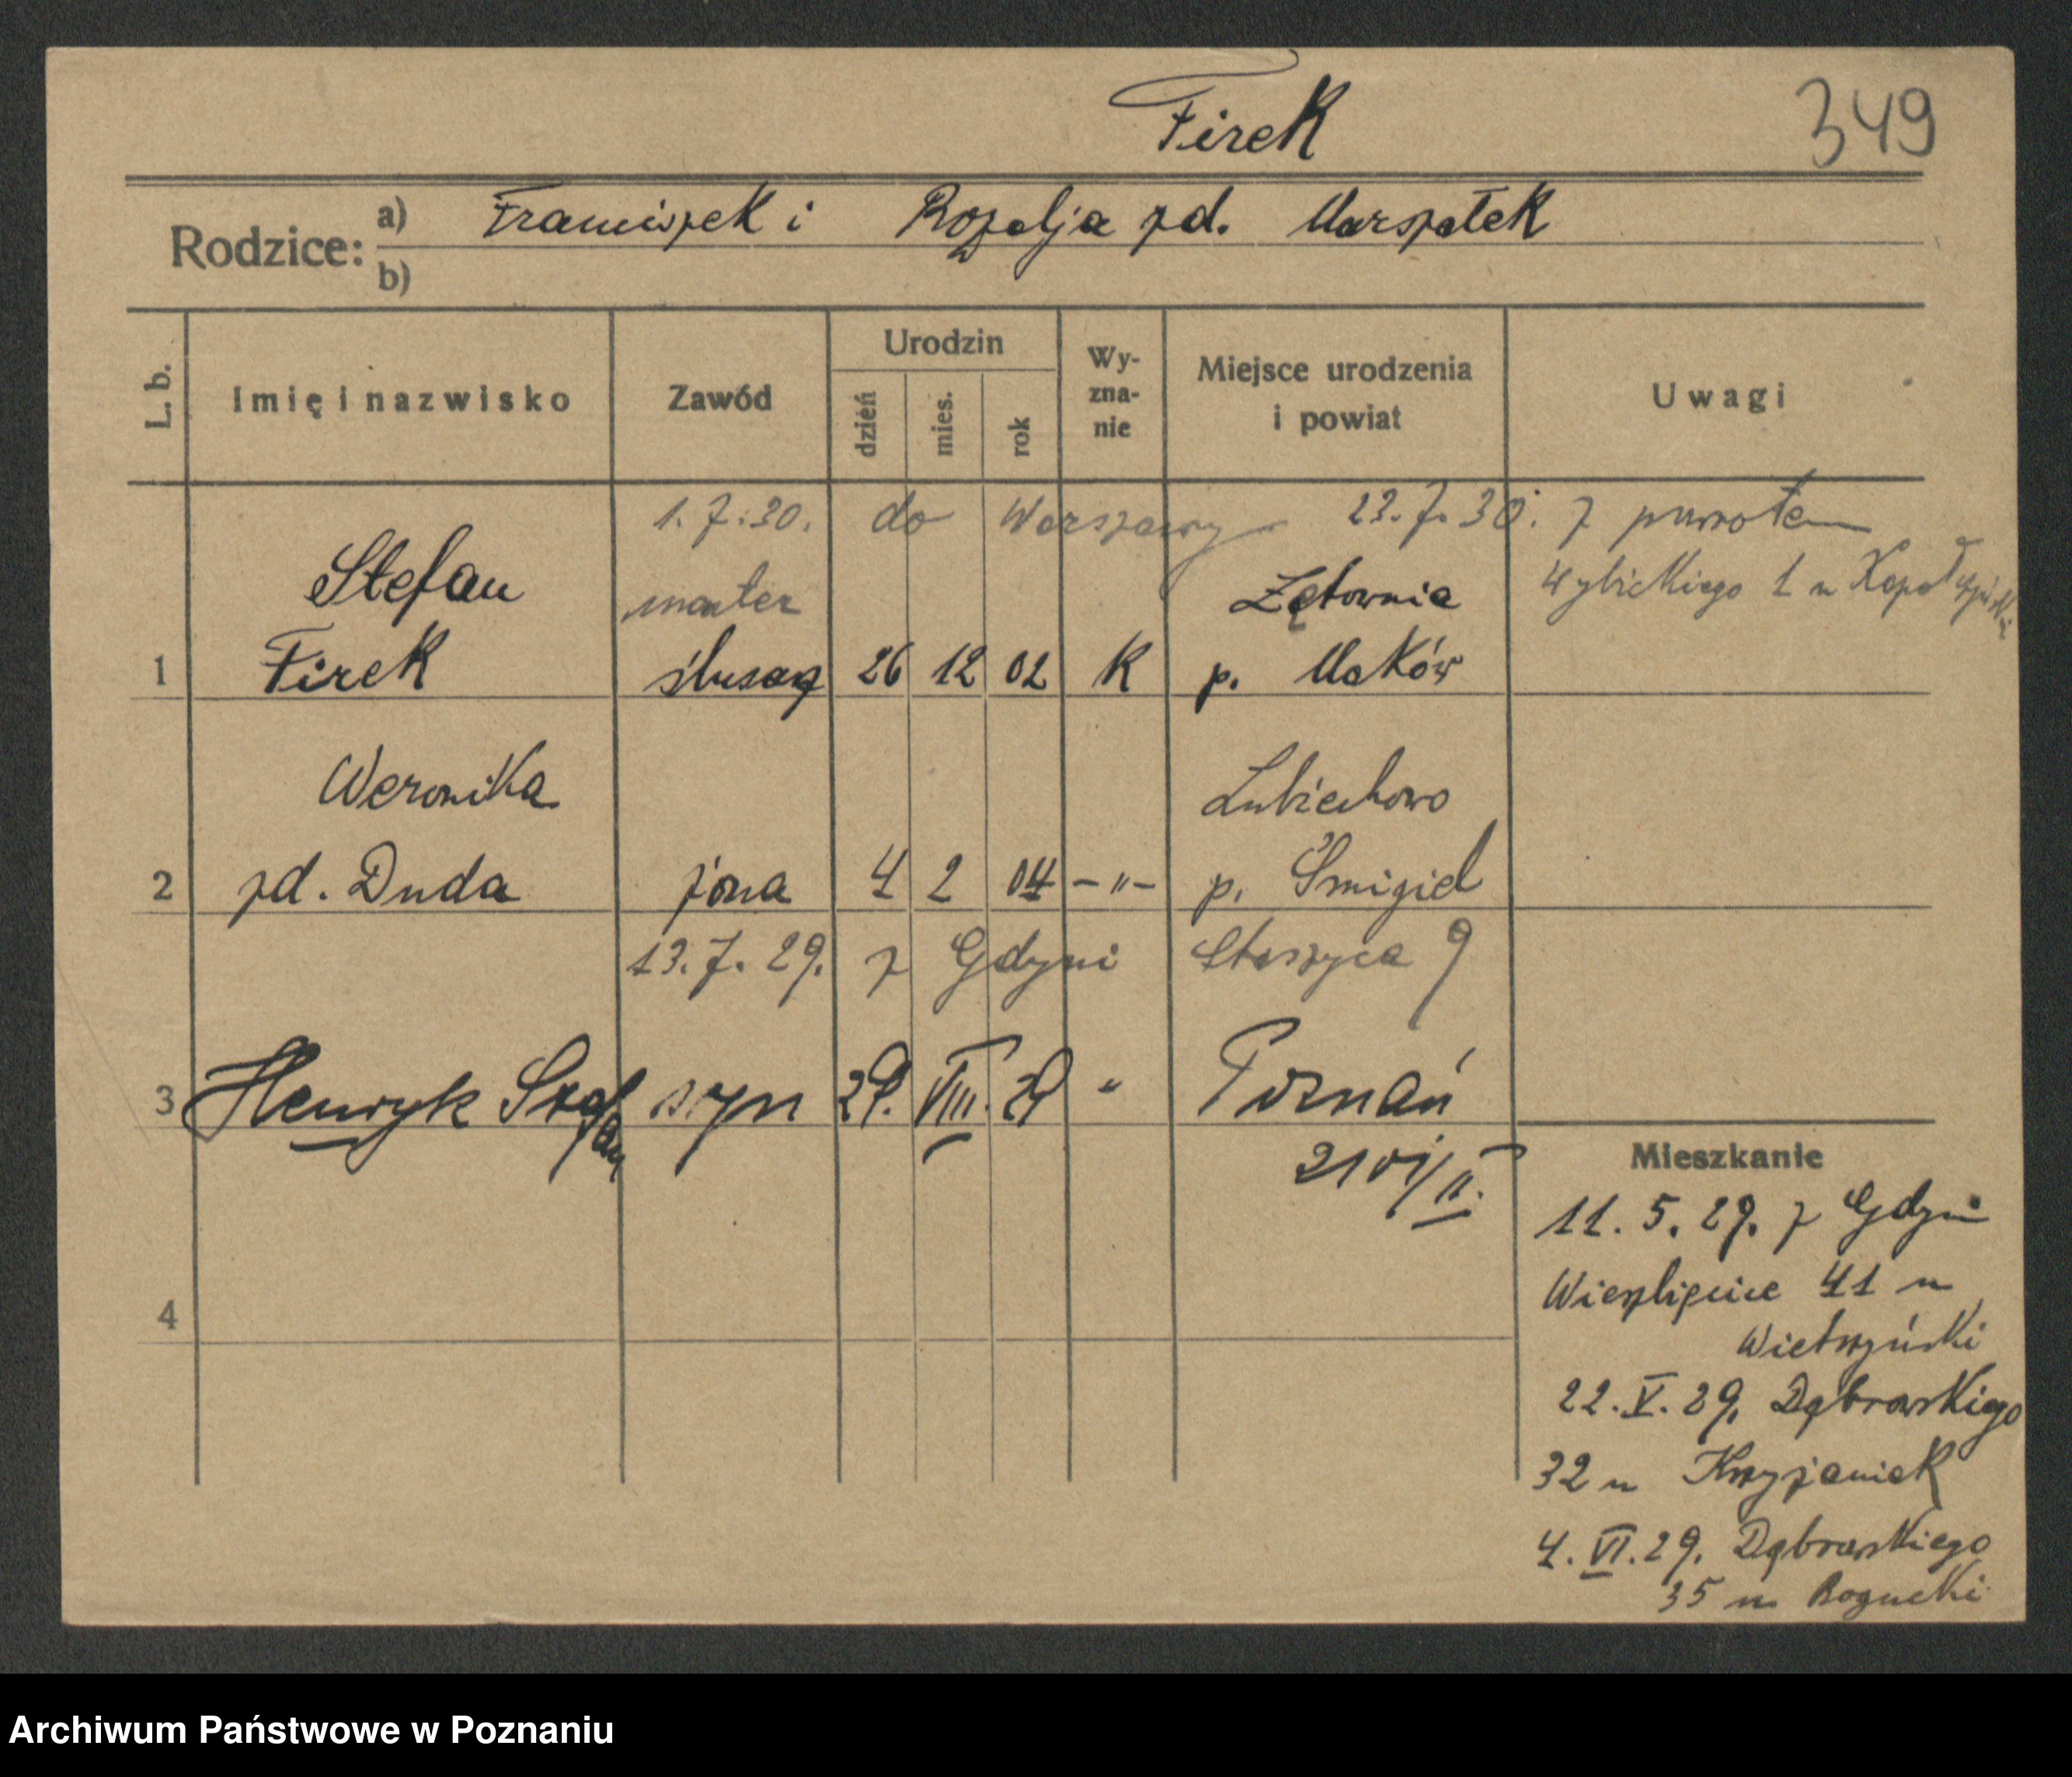 Firek 349
Rodzice: a) Franciszek i Rozalja zd. Marszałek
b)
L. b. Imię i nazwisko Zawód Urodzin dzień mies. rok Wy-zna-nie Miejsce urodzenia i powiat Uwagi
1. 7. 30. do Warszawy 23. 7. 30. z powrotem
Stefan monter Wybickiego 1 u
1 Firek ślusarz 26 12 02 K p. Maków
Weronika Lubiechowo
2 zd. Duda żona 4 2 04 -"- p. Śmigiel
13. 7. 29. z Gdyni Staszyca 9
3 Henryk Stefan syn 29. VIII. 29 " Poznań
Mieszkanie
11. 5. 29. z Gdyni
41 u
22. V. 29. Dąbrowskiego
4
32 u Krzyżaniak
4. VI. 29. Dąbrowskiego
35 u Bogucki
Archiwum Państwowe w Poznaniu